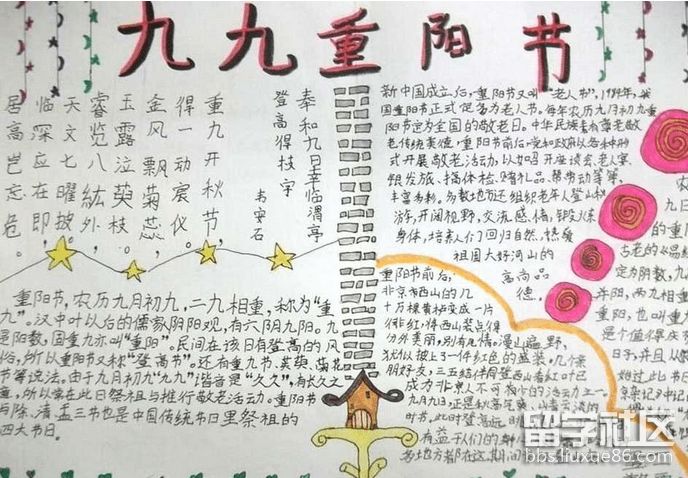 九九重阳节
奉和九日幸临渭亭
登高得枝字
韦安石
重九开秋节，
得一动宸仪。
金风飘菊蕊，
玉露泣萸枝。
睿览八紘外，
天文七曜披。
临深应在即，
居高岂忘危。
重阳节，农历九月初九，二九相重，称为"重
九"。汉中叶以后的儒家阴阳观，有六阴九阳。九
是阳数，固重九亦叫"重阳"。民间在该日有登高的风
俗，所以重阳节又称"登高节"。还有重九节、茱萸、菊花
节等说法。由于九月初九"九九"谐音是"久久"，有长久之
意，所以常在此日祭祖与推行敬老活动。重阳节
与除、清、盂三节也是中国传统节日里祭祖的
四大节日。
新中国成立后，重阳节又叫"老人节"。1989年，我
国重阳节正式定名为老人节。每年农历九月初九重
阳节定为全国的敬老日。中华民族素有尊老敬
老传统美德，重阳节前后，党和政府以各种形
式开展敬老活动，以如召开座谈会、老人宴、
银发旅、搞体检、赠礼品、帮带劳动等，
丰富多彩。多数地方还组织老年人登山秋
游，开阔视野，交流感情，锻炼
身体，培养人们回归自然，热爱
祖国大好河山的
高尚品
德。
重阳节前后，
北京市西山的几
十万棵黄栌变成一片
绯红，使西山装点得
分外美丽，别有风情。漫山遍野，
犹似披上了一件红色的盛装。几个亲
朋好友，三五结伴登西山看红叶已
成为北京人不可
九月九日，正是秋高气爽
时节，此时登高远
有益于人们的身
多地方都在这期间
农
九日
的重阳
古老的《易经
定为阴数，九
丹阳，两九相重
重阳，也叫重
是个值得庆
日子，并且从
留学社区
bbs.liuxue86.com